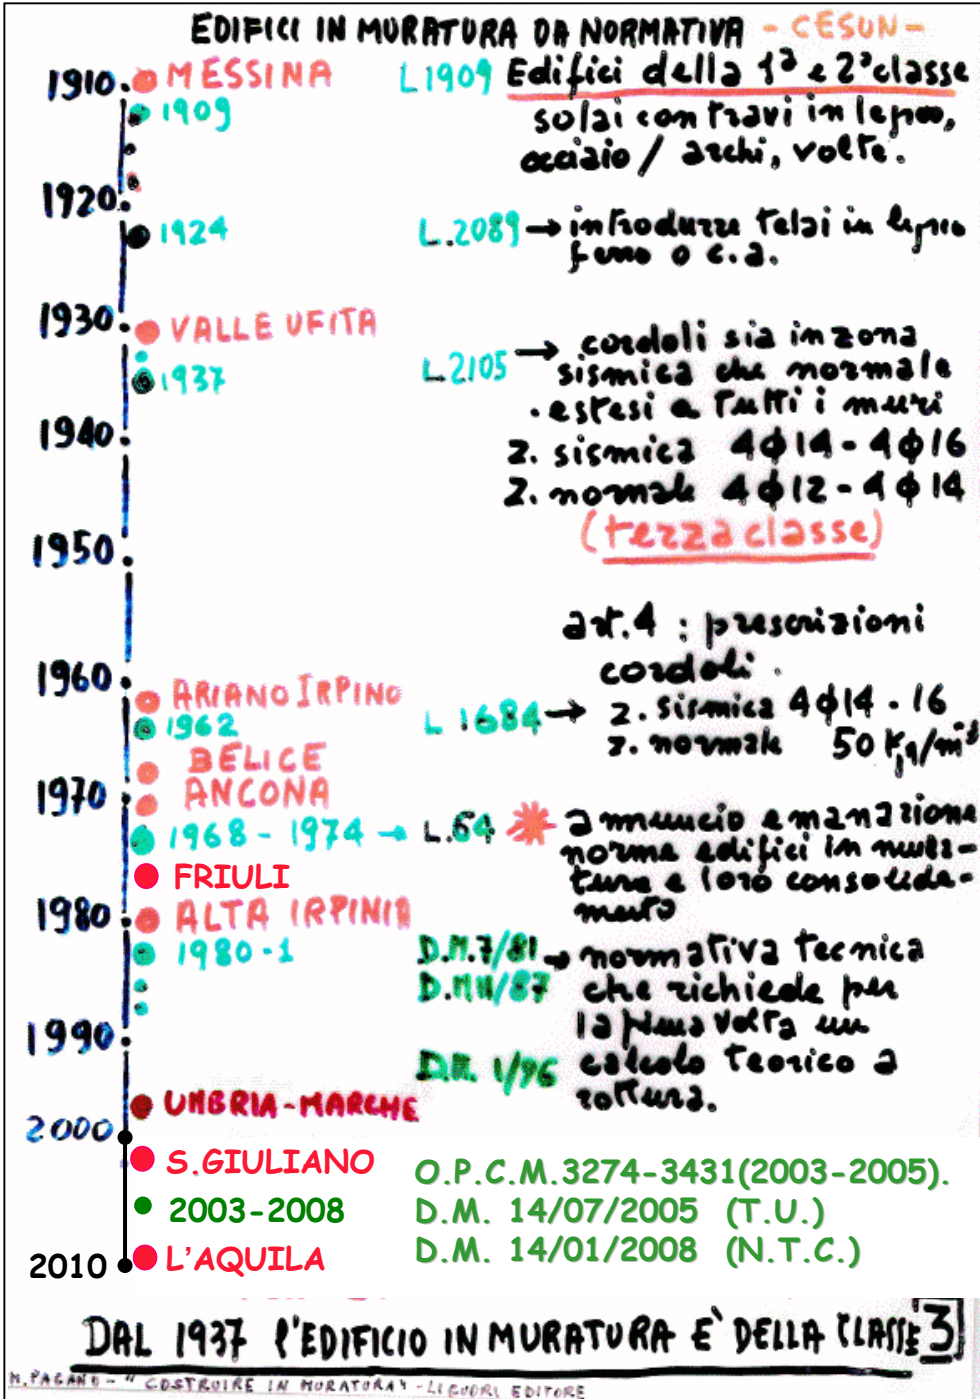 EDIFICI IN MURATURA DA NORMATIVA - CESUN -
1910 MESSINA L1909 Edifici della 1ª e 2ª classe
1909 solai con travi in legno,
acciaio / archi, volte.
1920
1924 L.2089 → introdurre telai in legno
ferro o c.a.
1930 VALLE UFITA
1937 L.2105 → cordoli sia in zona
sismica che normale
. estesi a tutti i muri
1940 z. sismica 4ϕ14 - 4ϕ16
z. normale 4ϕ12 - 4ϕ14
(terza classe)
1950
art.4 : prescrizioni
cordoli.
1960 ARIANO IRPINO
1962 L 1684 → z. sismica 4ϕ14 - 16
z. normale 50 Kg/m³
BELICE
1970 ANCONA
1968 - 1974 → L.64 annuncio emanazione
norme edifici in mura-
tura e loro consolida-
mento
FRIULI
1980 ALTA IRPINIA
1980-1 D.M.7/81 → normativa tecnica
D.M11/87 che richiede per
la prima volta un
1990 D.M. 1/96 calcolo teorico a
rottura.
UMBRIA-MARCHE
2000
S.GIULIANO O.P.C.M.3274-3431(2003-2005).
2003-2008 D.M. 14/07/2005 (T.U.)
2010 L'AQUILA D.M. 14/01/2008 (N.T.C.)
DAL 1937 l'EDIFICIO IN MURATURA E' DELLA CLASSE 3
M. PAGANO - "COSTRUIRE IN MURATURA" - LIGUORI EDITORE